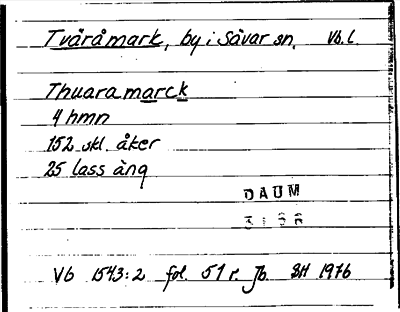 Tvåråmark, by i Sävar sn, Vb. l.
Thuara marck
4 hmn
152 skl. åker
25 lass äng
DAUM
Vb 1543:2 fol. 51 r. Jb. SH 1976